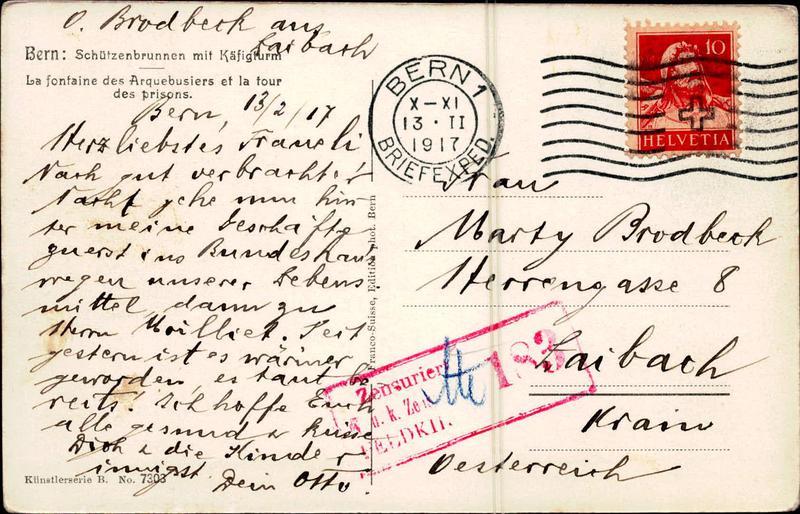 O. Brodbeck aus
Laibach
Bern: Schützenbrunnen mit Käfigturm
La fontaine des Arquebusiers et la tour
des prisons.
Bern, 13/2/17
Herzliebstes Fraueli
Nach gut verbrachter
Nacht gehe nun hin-
ter meine Geschäfte
zuerst ins Bundeshaus
wegen unserer Lebens
mittel, dann zu
Herrn Moilliet. Seit
gestern ist es wärmer
geworden es taut be
reits! Ich hoffe Euch
alle gesund & küsse
Dich & die Kinder
innigst Dein Otto
Künstlerserie B. No. 7303
Franco-Suisse, Edition Phot. Bern
BERN 1
X-XI
13·II
1917
BRIEFEXPED.
10
HELVETIA
Frau
Marty Brodbeck
Herrengasse 8
Laibach
Krain
Oesterreich
Zensuriert
K. u. k. Zen
FELDKI
183